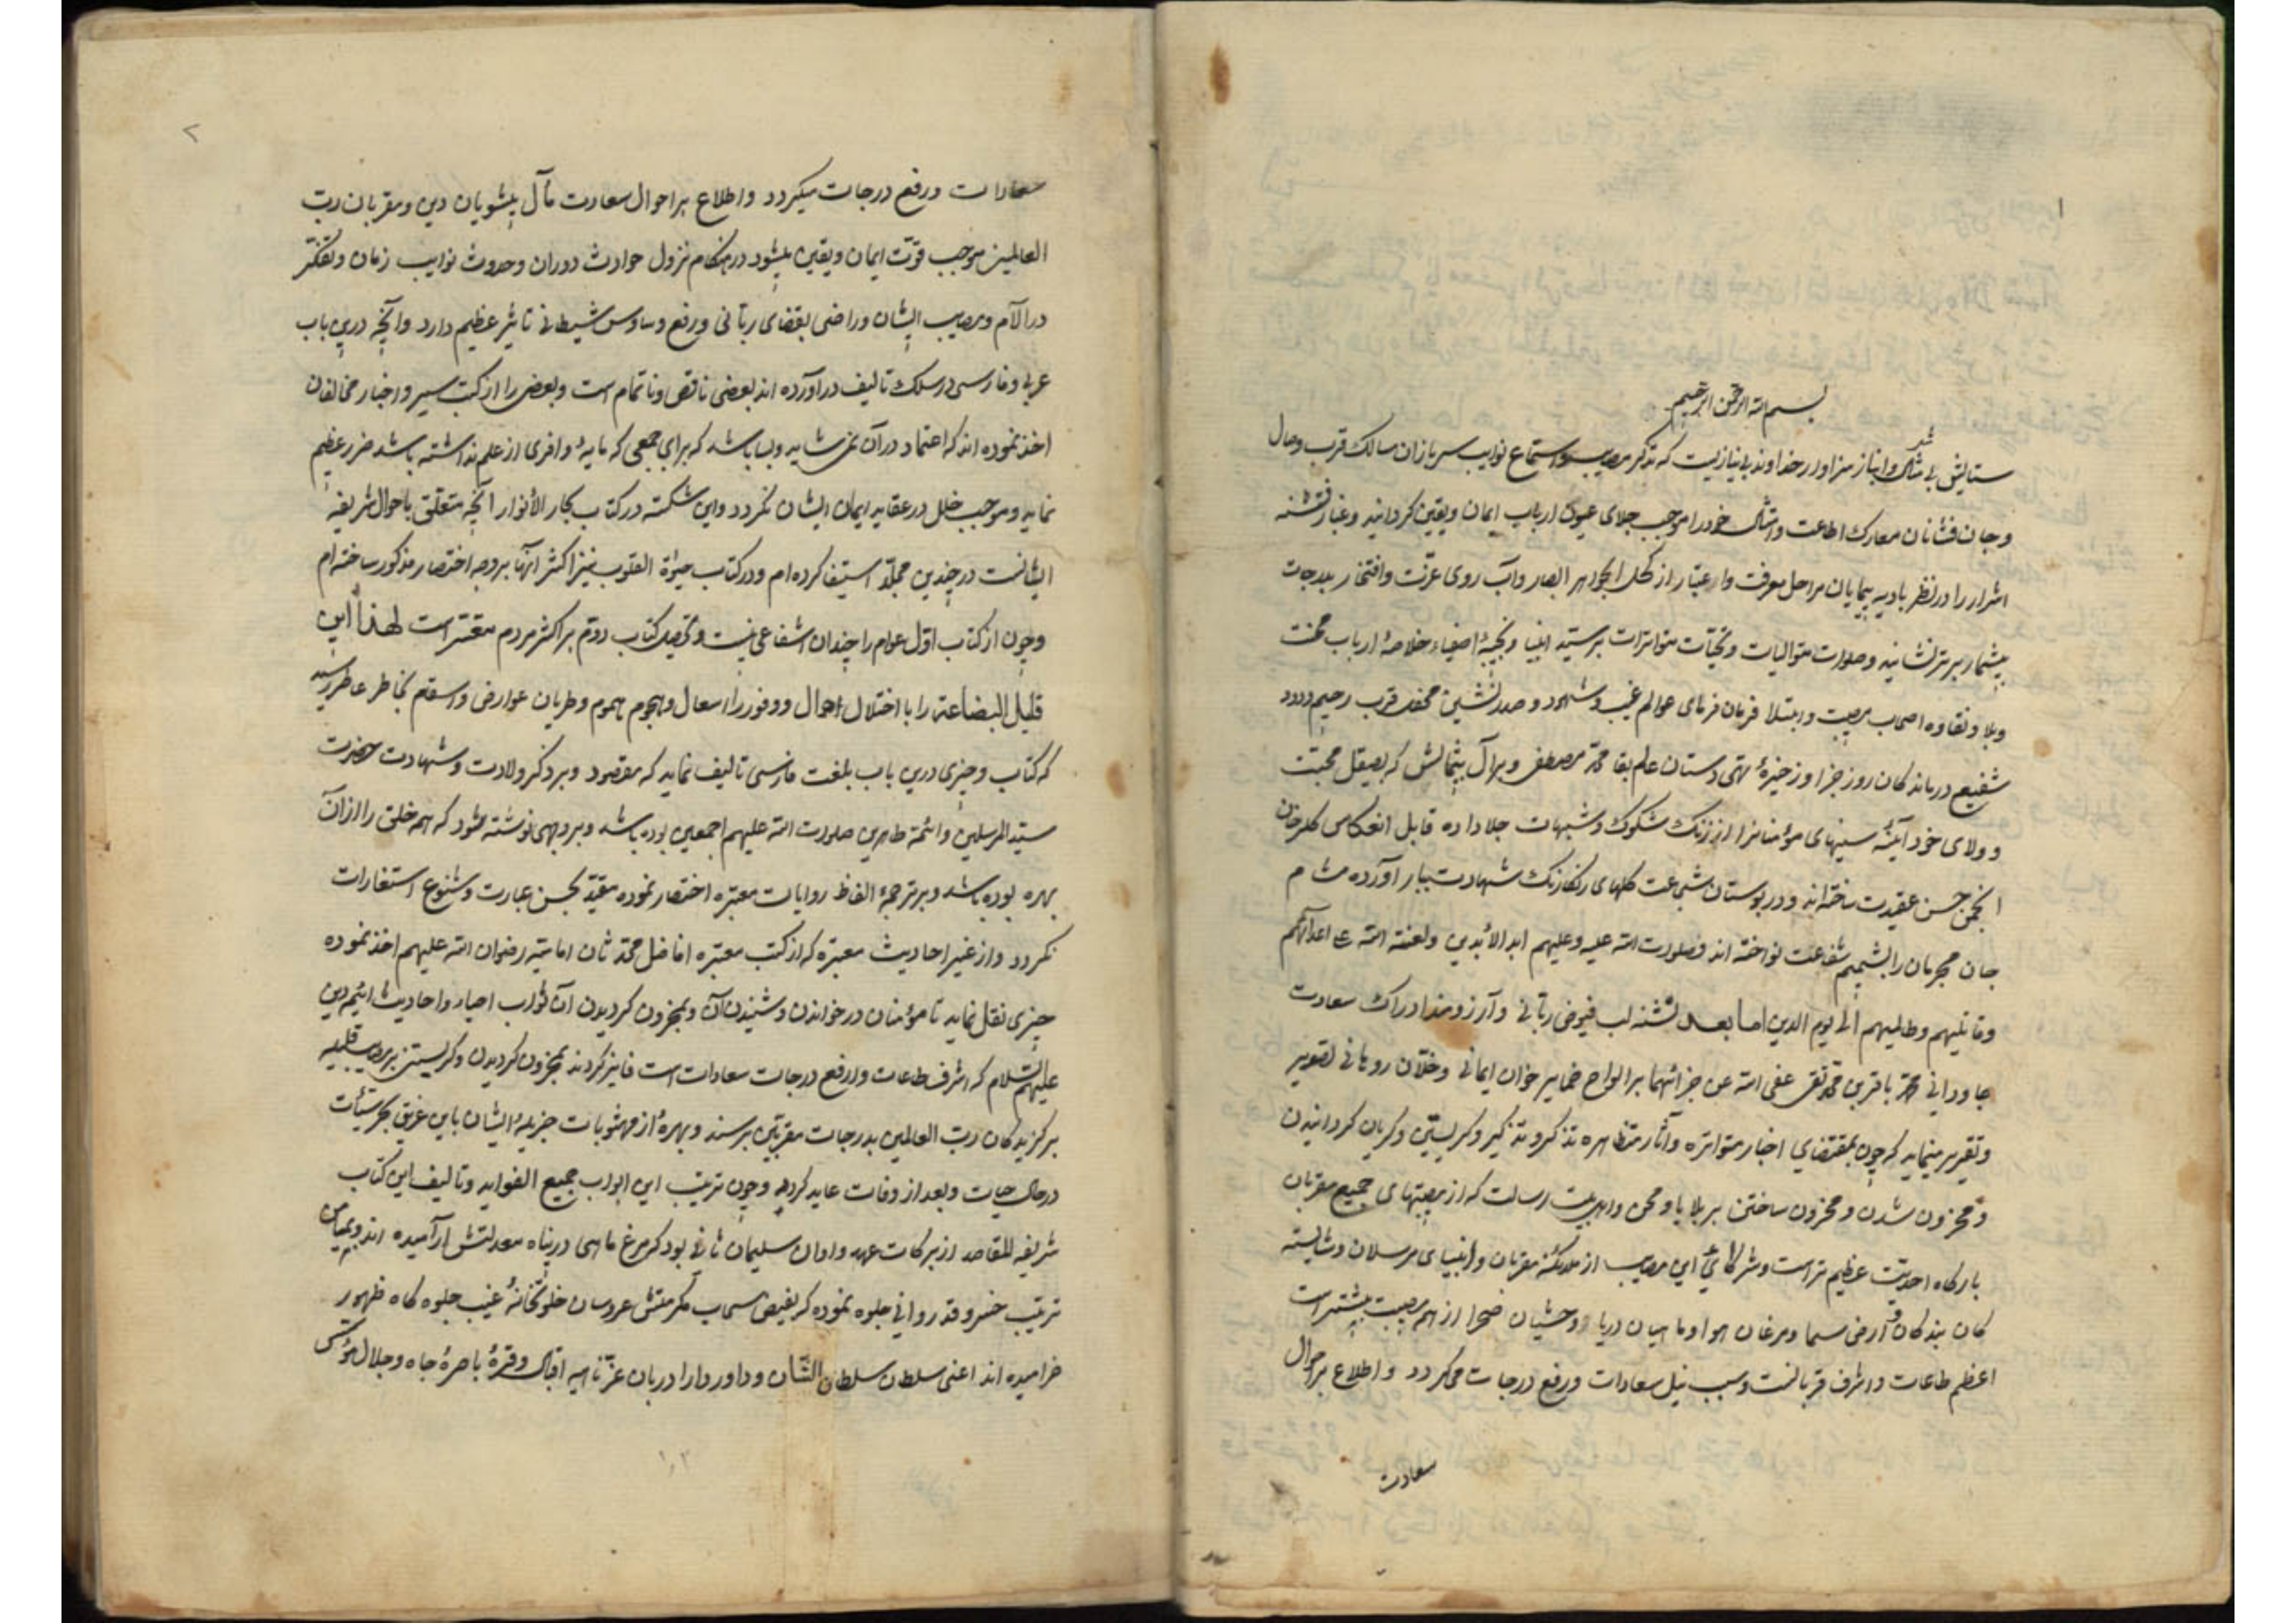 ۱
بسم الله الرحمن الرحیم
ستایش بی شک و انباز سزاوار خداوند بی نیازیست که تذکر مصیبت و استماع نوایب سربازان مسالک قرب وصال
و جان فشانان معارک اطاعت و امتثال خود را موجب جلای عیون ارباب ایمان و یقین گردانید و غبار فتنه
اشرار را در نظر بادیه پیمایان مراحل معرفت و اعتبار از کحل الجواهر ابصار و آب روی عزت و افتخار بدرجات
بیشمار برتر نشانید و صلوات متوالیات و تحیات متواترات بر سید انبیا و نخبهٔ اصفیاء خلاصهٔ ارباب محنت
و بلا و نقاوه اصحاب مصیبت و ابتلا فرمان فرمای عوالم غیب و شهود و صدر نشین محفل قرب رحیم ودود
شفیع درماندکان روز جزا و ذخیرهٔ تهی دستان عالم بقا محمد مصطفی و بر آل بیمثالش که بصیقل محبت
و ولای خود آینهٔ سینهای مؤمنانرا از زنک شکوک و شبهات جلا داده قابل انعکاس کلرخان
انجمن حسن عقیدت ساخته اند و در بوستان شجاعت کلهای رنکارنک شهادت ببار آورده مشام
جان مجرمان را بشمیم شفاعت نواخته اند فصلوات الله علیه و علیهم ابد الآبدین و لعنة الله علی اعدائهم
و قاتلیهم و ظالمیهم الی یوم الدین اما بعد تشنه لب فیوض ربانی و آرزومند ادراک سعادت
جاودانی محمد باقر بن محمد تقی عفی الله عن جرائمهما بر الواح ضمایر اخوان ایمانی و خلان روحانی تصویر
و تقریر مینماید که چون بمقتضای اخبار متواتره و آثار متظاهره تذکر و تذکیر و کریستن و کریان کردانیدن
و محزون شدن و محزون ساختن بر بلایا و محن اهل بیت رسالت که از مصیبتهای جمیع مقربان
بارکاه احدیت عظیم تر است و شرکای این مصایب از ملائکه مقربان و انبیای مرسلان و شایسته
کان بندکان ارض و سما و مرغان هوا و ماهیان دریا و وحشیان صحرا از همه مصیبت بیشتر است
اعظم طاعات و اشرف قرباتست و سبب نیل سعادات و رفع درجات می کردد و اطلاع بر احوال
سعادت
۲
سعادات و رفع درجات میکردد و اطلاع بر احوال سعادت مآل پیشوایان دین و مقربان رب
العالمین موجب قوت ایمان و یقین میشود در هنکام نزول حوادث دوران و حدوث نوایب زمان و تفکر
در آلام و مصایب ایشان و راضی بقضای ربانی و رفع وساوس شیطانی تاثیر عظیم دارد و آنچه درین باب
عربی و فارسی در سلک تالیف در آورده اند بعضی ناقص و ناتمام است و بعضی را از کتب سیر و اخبار مخالفان
اخذ نموده اند که اعتماد در آن نمی شاید و بسا باشد که برای جمعی که مایهٔ وافری از علم نداشته باشد ضرر عظیم
نماید و موجب خلل در عقاید ایمان ایشان کردد و این شکسته در کتاب بحار الأنوار آنچه متعلق باحوال شریفه
ایشانست در چندین مجلد استیفا کرده ام و در کتاب حیوة القلوب نیز اکثر آنها بر وجه اختصار مذکور ساخته ام
و چون از کتاب اول عوام را چندان انتفاعی نیست و تحصیل کتاب دوم بر اکثر مردم متعسر است لهذا این
قلیل البضاعة را با اختلال احوال و وفور اشغال و هجوم هموم و طریان عوارض و اسقام بخاطر فاطر رسید
که کتاب وجیزی درین باب بلغت فارسی تالیف نماید که مقصود بر ذکر ولادت و شهادت حضرت
سید المرسلین و ائمهٔ طاهرین صلوات الله علیهم اجمعین بوده باشد و بر وجهی نوشته شود که همه خلق را از آن
بهره بوده باشد و بر ترجمهٔ الفاظ روایات معتبره اختصار نموده مقید بحسن عبارت و تنوع استعارات
نکردد و از غیر احادیث معتبره که از کتب معتبره افاضل محدثان امامیه رضوان الله علیهم اخذ نموده
چیزی نقل نماید تا مؤمنان در خواندن و شنیدن آن و محزون کردیدن آن ثواب احیاء احادیث ائمه دین
علیهم السلام که اشرف طاعات و ارفع درجات سعادات است فایز کردند و بمحزون کردیدن و کریستن بر مصیبت
برکزیدکان رب العالمین بدرجات مقربین برسند و بهره از مثوبات جزیلهٔ ایشان باین غریق بحر سیئات
در حال حیات و بعد از وفات عاید کردد و چون ترتیب این ابواب جمیع الفواید و تالیف این کتاب
شریفه المقاصد از برکات عهد و اوان سلیمان ثانی بود که مرغ و ماهی در پناه معدلتش آرمیده اند و بمیامن
تربیت خسرو قدردانی جلوه نموده که بفیض سحاب مکرمتش عروسان خلوتخانهٔ غیب جلوه کاه ظهور
خرامیده اند اعنی سلطان سلطان الشان و داور دارا دربان غرهٔ ناصیه اقبال و قرهٔ باصرهٔ جاه و جلال مؤسس